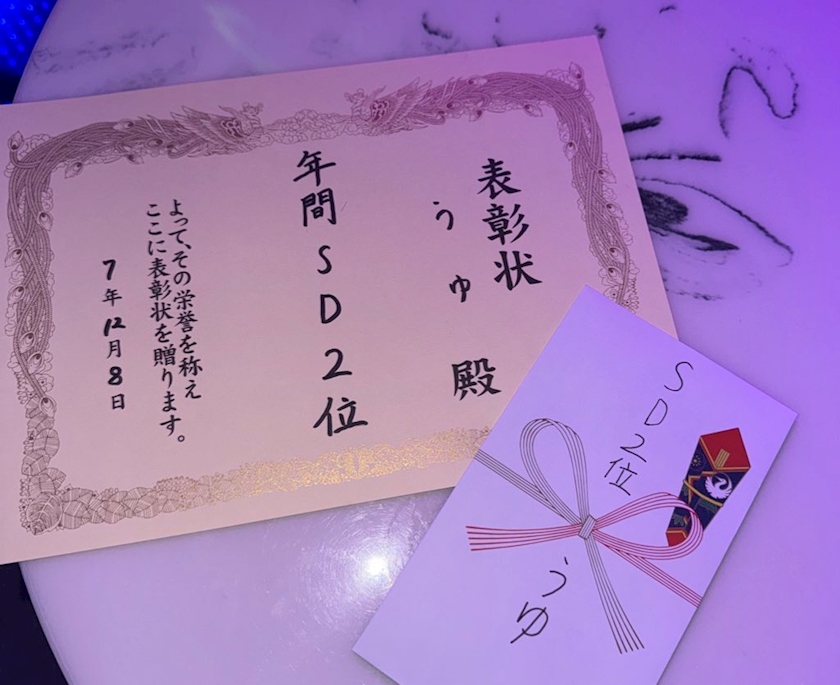 表彰状
うゅ 殿
年間SD2位
よって、その栄誉を称え
ここに表彰状を贈ります。
7年12月8日
SD2位
うゆ